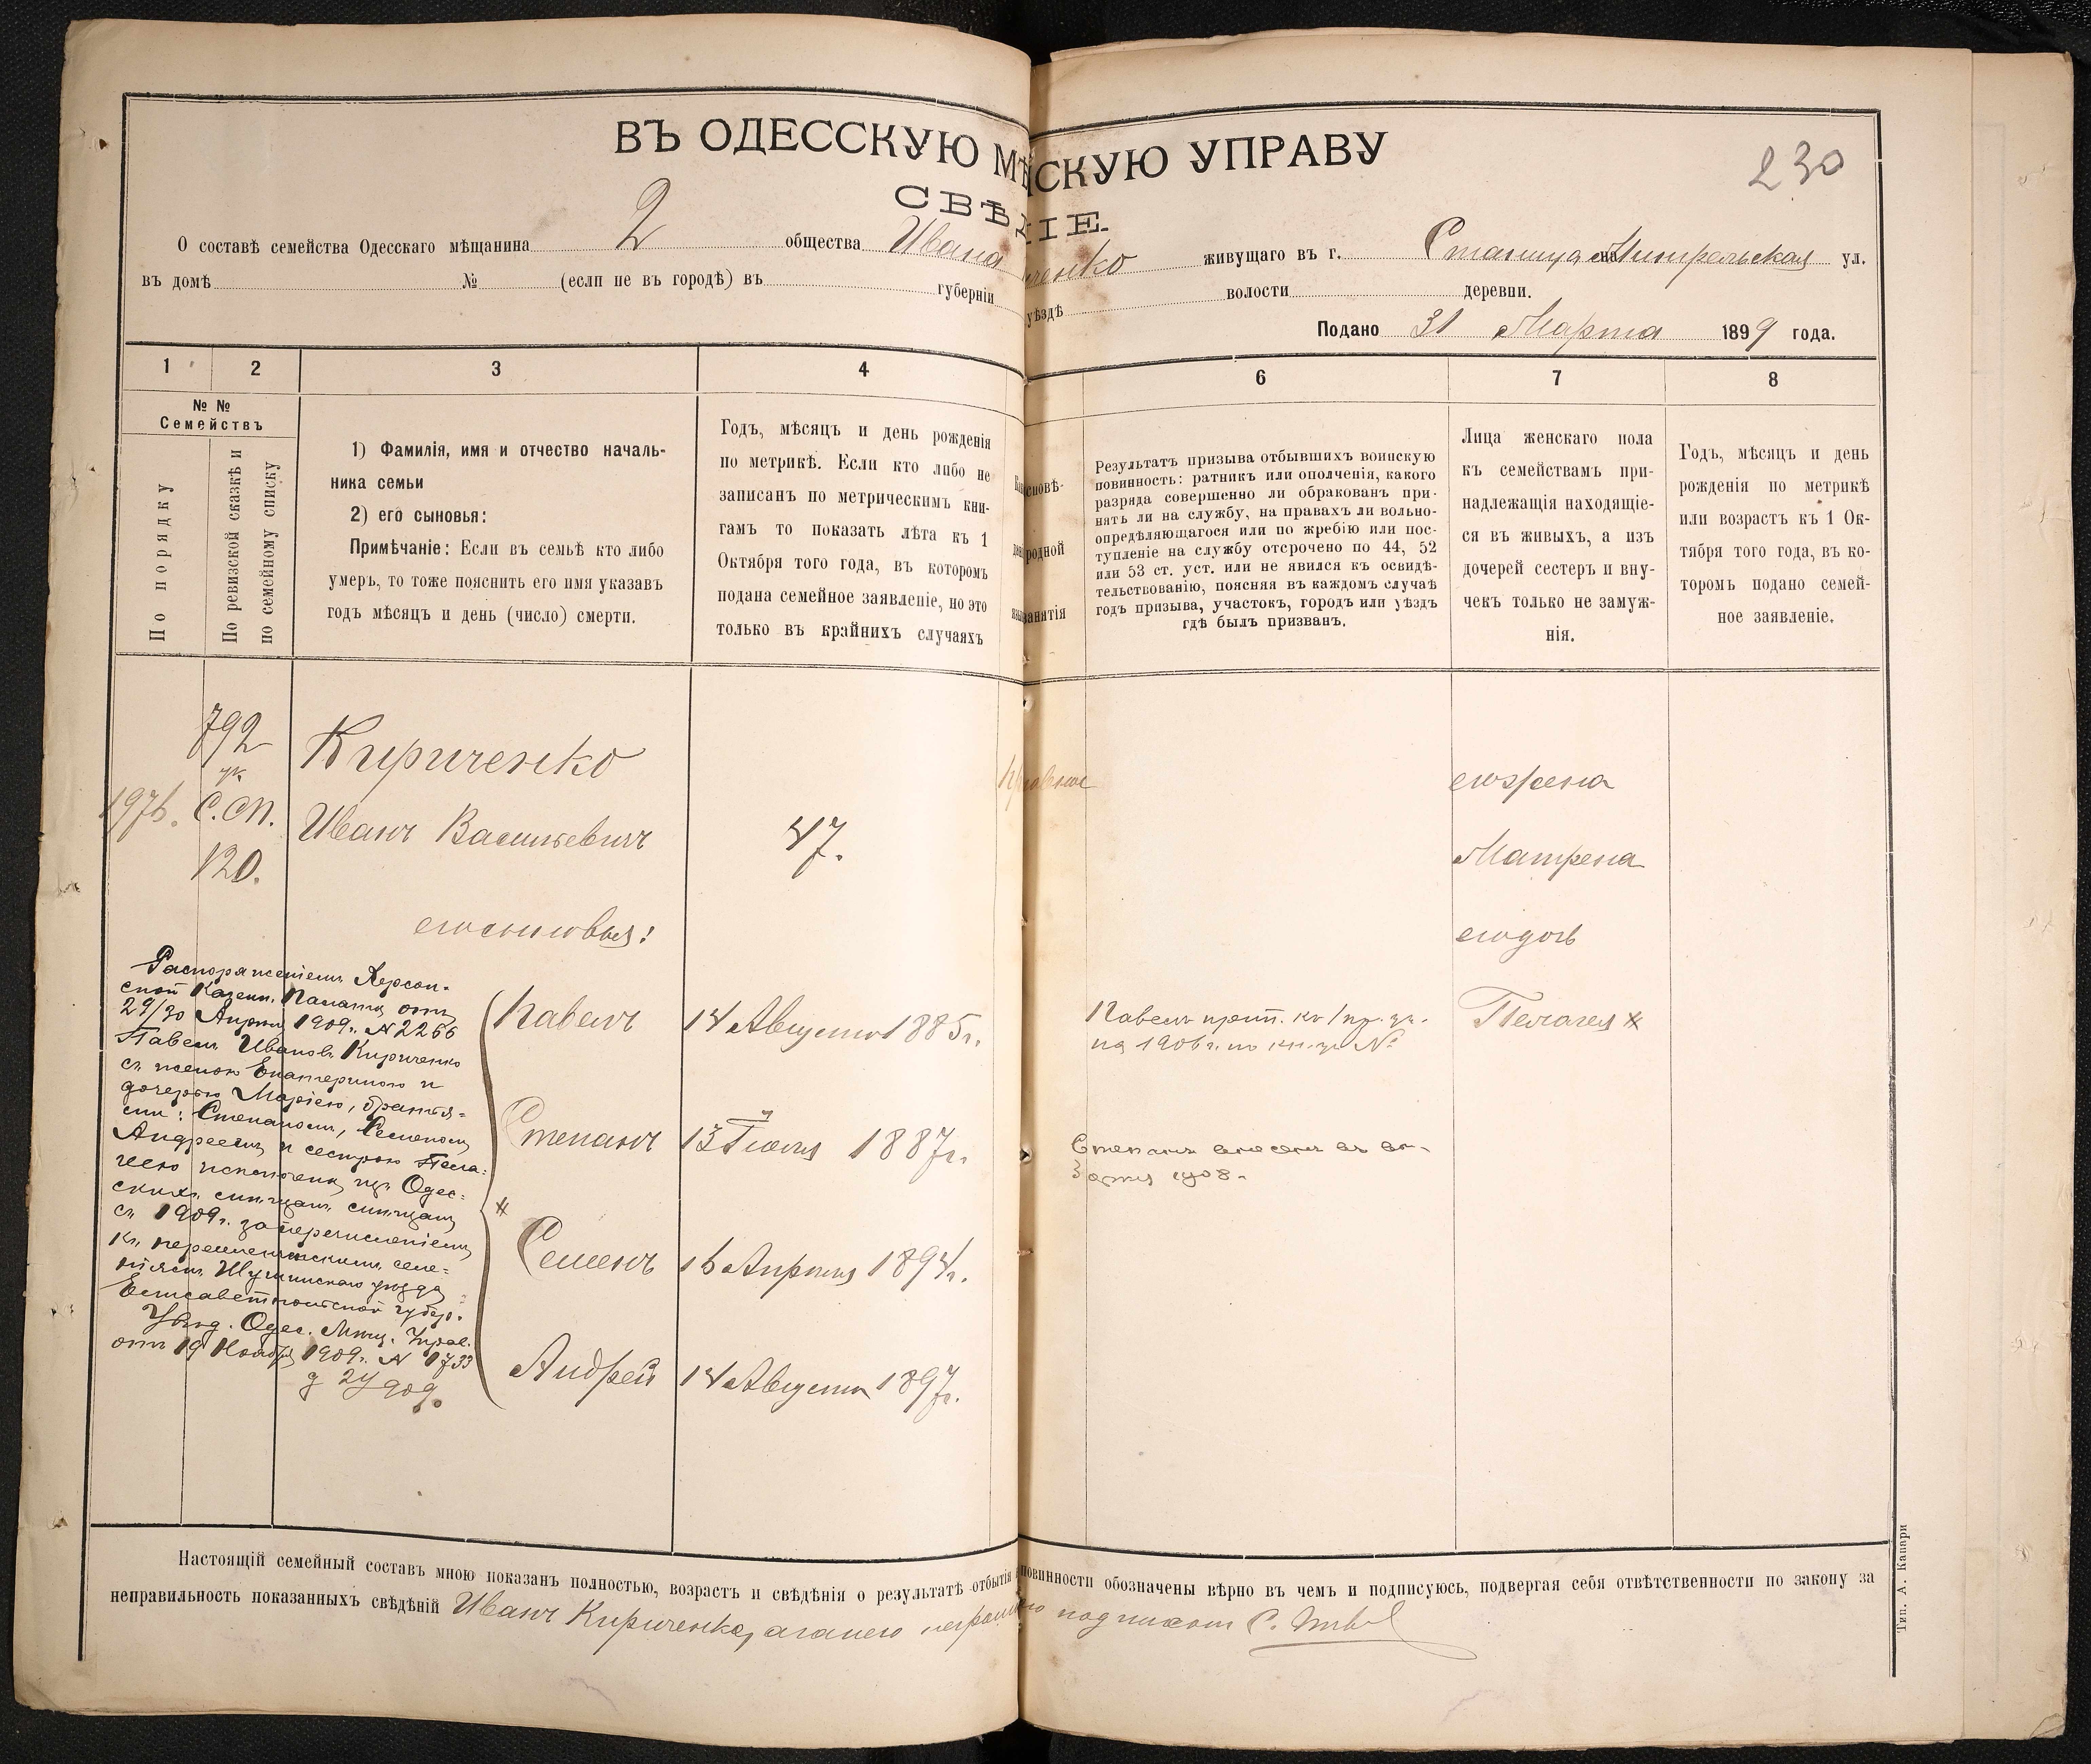 ВЪ ОДЕССКУЮ МѢ СКУЮ УПРАВУ
230
СВѢ НІЕ.
О составѣ семейства Одесскаго мѣщанина 2 общества Ивана ченко живущаго въ г. Станица на ул.
въ домѣ № (если не въ городѣ) въ губерніи уѣздѣ волости деревни.
Подано 31 Марта 1899 года.
1 2 3 4 6 7 8
№ №
Семействъ
По порядку
По ревизской сказкѣ и
по семейному списку
1) Фамилія, имя и отчество началь-
ника семьи
2) его сыновья:
Примѣчаніе: Если въ семьѣ кто либо
умеръ, то тоже пояснить его имя указавъ
годъ мѣсяцъ и день (число) смерти.
Годъ, мѣсяцъ и день рожденія
по метрикѣ. Если кто либо не
записанъ по метрическимъ кни-
гамъ то показать лѣта къ 1
Октября того года, въ которомъ
подана семейное заявленіе, но это
только въ крайнихъ случаяхъ
повѣ-
родной
занятія
Результатъ призыва отбывшихъ воинскую
повинность: ратникъ или ополченія, какого
разряда совершенно ли обракованъ при-
нятъ ли на службу, на правахъ ли вольно-
опредѣляющагося или по жребію или пос-
тупленіе на службу отсрочено по 44, 52
или 53 ст. уст. или не явился къ освидѣ-
тельствованію, поясняя въ каждомъ случаѣ
годъ призыва, участокъ, городъ или уѣздъ
гдѣ былъ призванъ.
Лица женскаго пола
къ семействамъ при-
надлежащія находящіе-
ся въ живыхъ, а изъ
дочерей сестеръ и вну-
чекъ только не замуж-
нія.
Годъ, мѣсяцъ и день
рожденія по метрикѣ
или возрастъ къ 1 Ок-
тября того года, въ ко-
торомъ подано семей-
ное заявленіе.
792
С.сп.
120.
Кириченко
Иванъ Васильевичъ
47.
его жена
Матрена
его сыновья:
его дочь
Павелъ 14 Августа 1885 г.
Павелъ прип. къ
на 1906 г. по №
Пелагея
Степанъ 13 Іюля 1887 г.
Степанъ внесенъ въ
1908.
Семенъ 16 Апреля 1894 г.
Андрей 14 Августа 1897 г.
Распоряженіемъ Херсон-
ской Казенн. Палаты отъ
29/30 Апрѣля 1909 г. № 2266
Павелъ Ивановъ Кириченко
съ женою Екатериною и
дочерью Маріею, братья-
ми: Степаномъ, Семеномъ
Андреемъ и сестрою Пела-
геею исключены изъ Одес-
скихъ мѣщанъ
съ 1909 г. за перечисленіемъ
къ переселенческимъ селе-
ніямъ Шушинскаго уѣзда
Елисаветпольской губер.
Увѣд. Одес. Мѣщ. Управ.
отъ 19 Ноября 1909 г. № 1733
Настоящій семейный составъ мною показанъ полностью, возрастъ и свѣдѣнія о результатѣ отбытія повинности обозначены вѣрно въ чемъ и подписуюсь, подвергая себя отвѣтственности по закону за
неправильность показанныхъ свѣдѣній Иванъ Кириченко, а за него неграмотнаго подписалъ С.
Тип. А. Капари